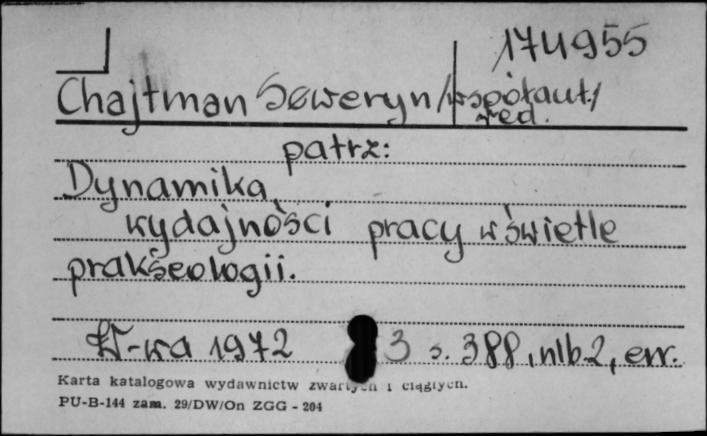 174955
Chajtman Seweryn /współaut./
red.
patrz:
Dynamika
wydajności pracy w świetle
prakseologii.
W-wa 1972 3 s. 388, nlb 2, err.
Karta katalogowa wydawnictw zwartych i ciągłych.
PU-B-144 zam. 29/DW/On ZGG - 204